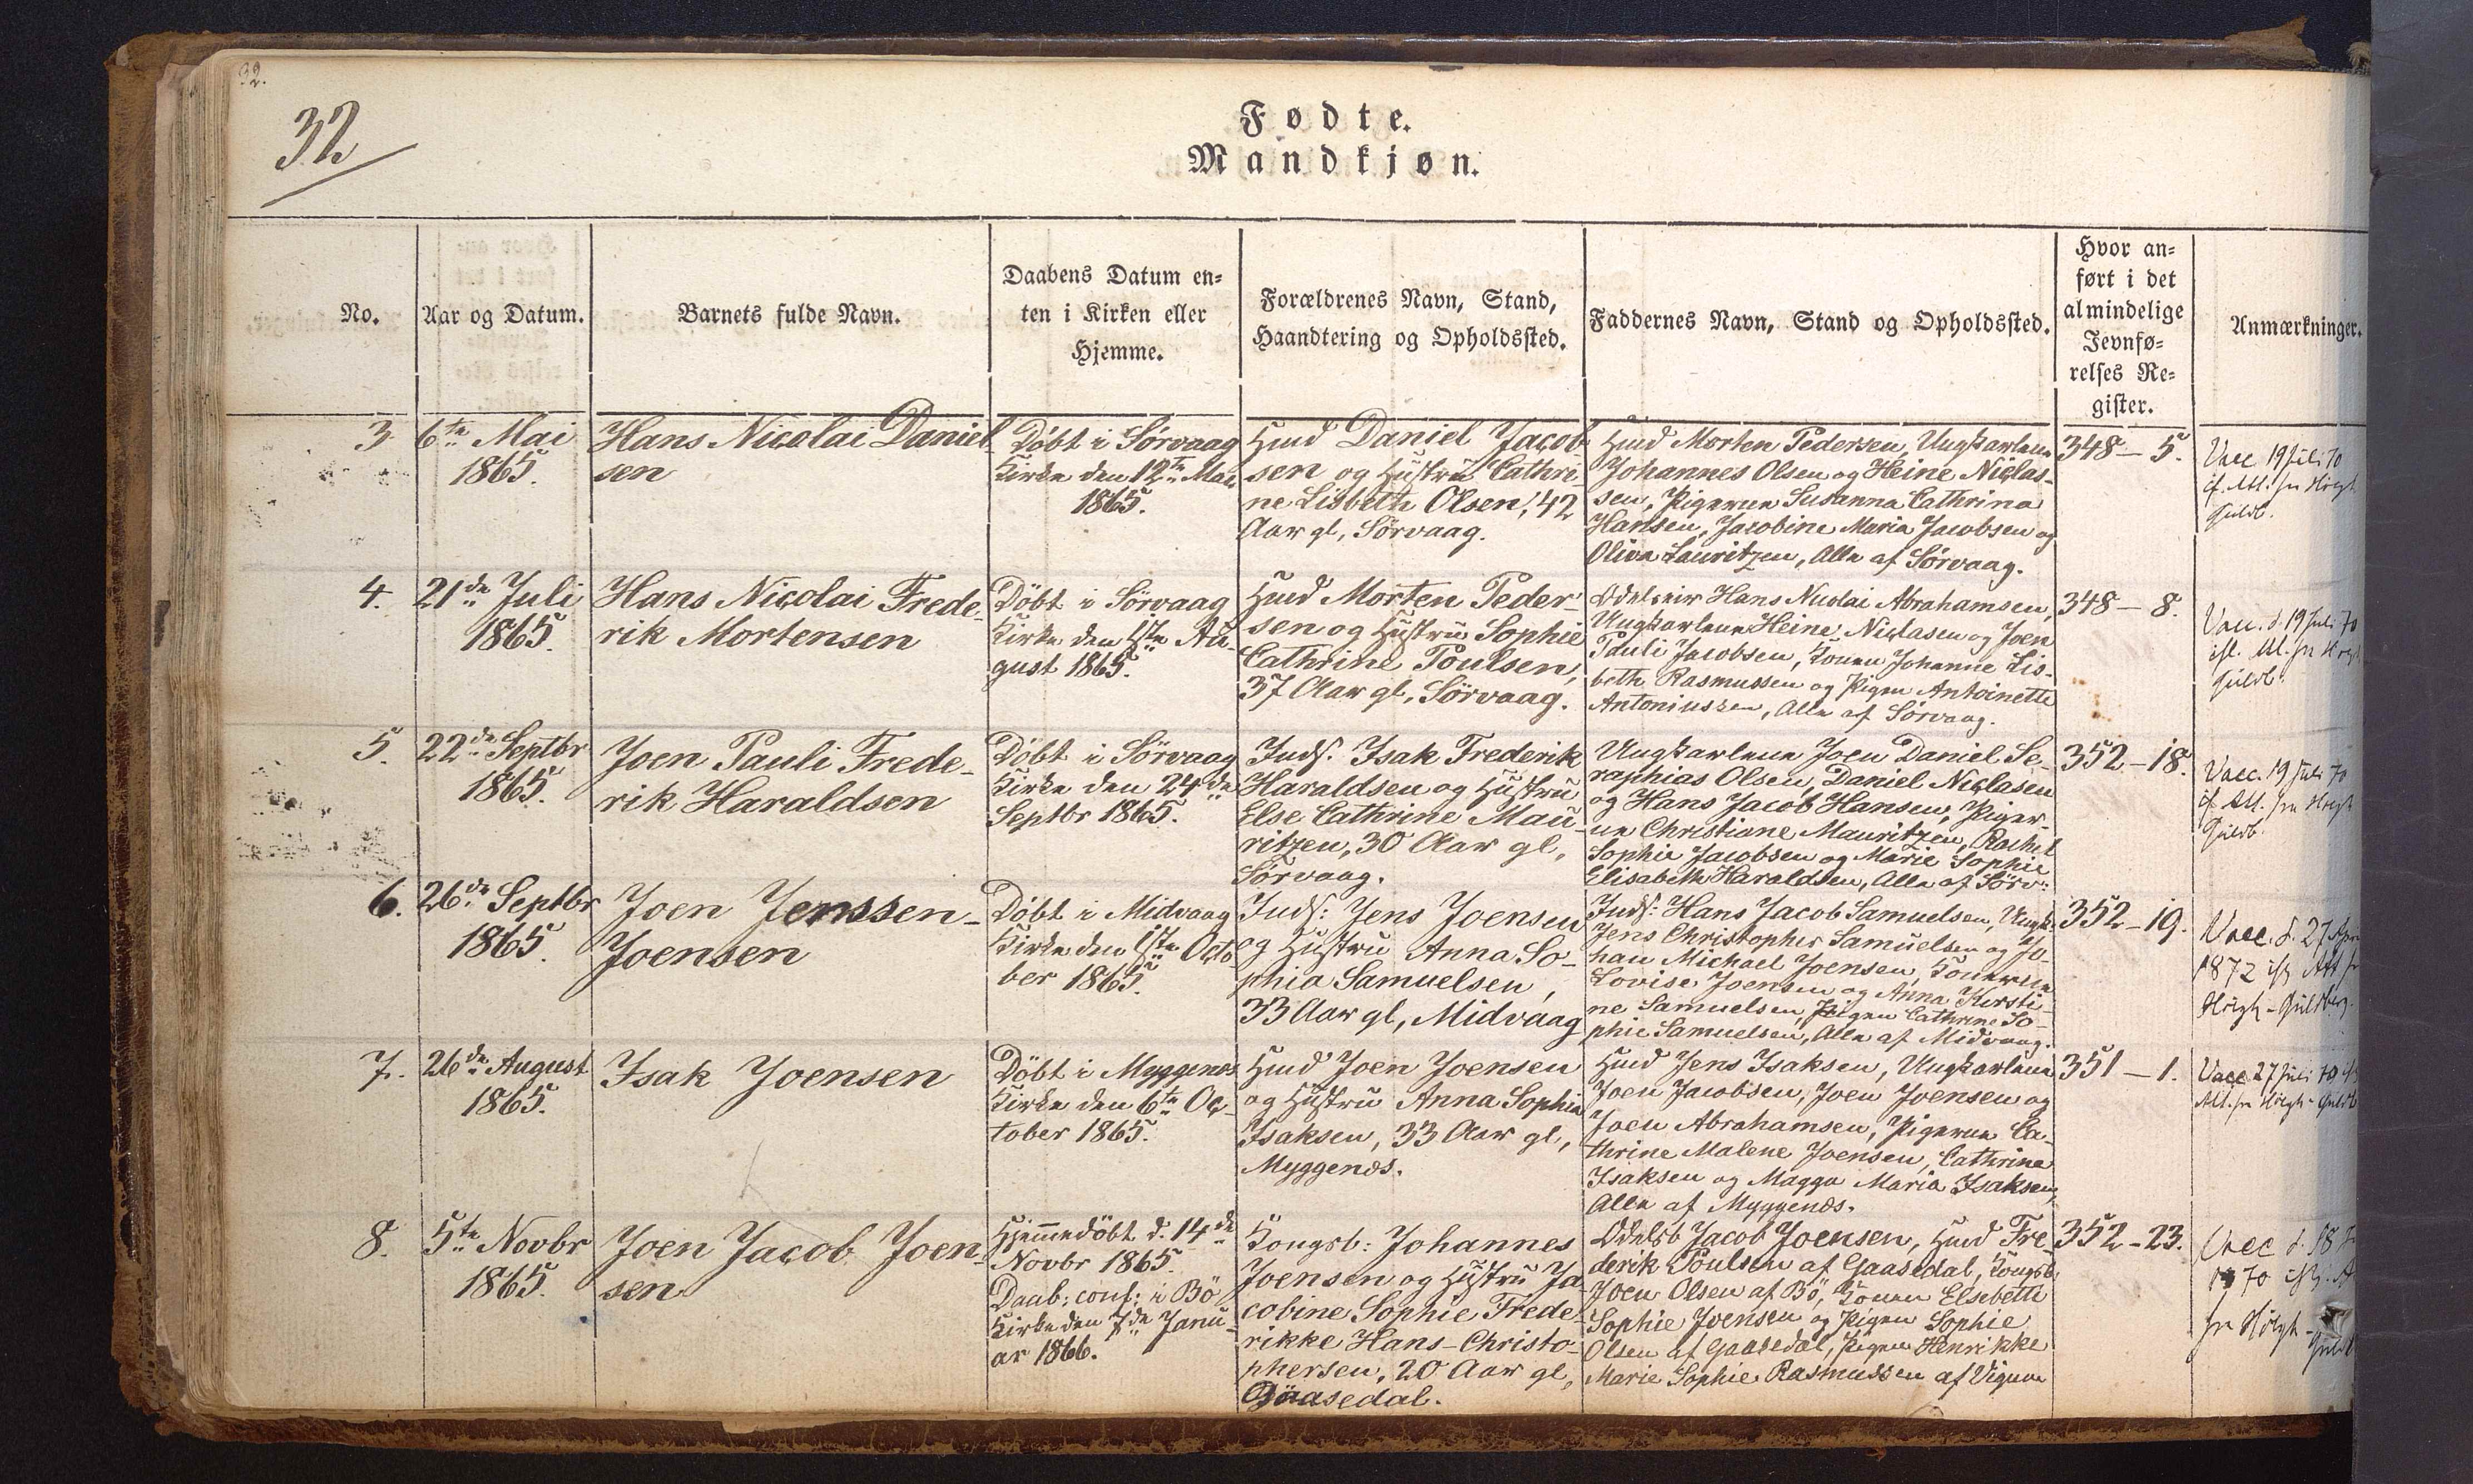 32.
32
Fødte.
Mandkjøn.
No.
Aar og Datum.
Barnets fulde Navn.
Daabens Datum en=
ten i Kirken eller
Hjemme.
Forældrenes Navn, Stand,
Haandtering og Opholdssted.
Faddernes Navn, Stand og Opholdssted.
Hvor an=
ført i det
almindelige
Jevnfø=
relses Re=
gister.
Anmærkninger.
3
6te Mai
1865.
Hans Nicolai Daniel-
sen
Döbt i Sörvaag
Kirke den 12te Mai
1865.
Huusmd Daniel Jacob-
sen og Hustru Cathri-
ne Lisbeth Olsen, 42
Aar gl, Sörvaag.
Hmd Morten Pedersen, Ungkarlene
Johannes Olsen og Heine Niclas-
sen, Pigerne Susanna Cathrina
Hansen, Jacobine Maria Jacobsen og
Oliva Lauritzen, Alle af Sörvaag.
348 - 5.
Vacc 19 Juli 70
if. Att. fra Höegh
Guldb.
4.
21de Juli
1865.
Hans Nicolai Frede-
rik Mortensen
Döbt i Sörvaag
Kirke den 4ste Au-
gust 1865.
Hmd Morten Peder-
sen og Hustru Sophie
Cathrine Poulsen,
37 Aar gl, Sörvaag.
Hans Nicolai Abrahamsen,
Ungkarlene Heine Niclasen og Joen
Pauli Jacobsen, Konen Johanne Lis-
beth Rasmussen og Pigen Antoinette
Antoniussen, Alle af Sörvaag.
348 - 8.
Vacc. d. 19 Juli 70
Att. fra Höegh
Guldb.
5.
22de Septbr
1865.
Joen Pauli Frede-
rik Haraldsen
Döbt i Sörvaag
Kirke den 24de
Septbr 1865.
Inds. Isak Frederik
Haraldsen og Hustru
Else Cathrine Mau-
ritzen, 30 Aar gl,
Sörvaag.
Ungkarlene Joen Daniel Se-
raphias Olsen, Daniel Niclasen
og Hans Jacob Hansen, Piger-
ne Christiane Mauritzen, Rachel
Sophie Jacobsen og Marie Sophie
Elisabeth Haraldsen, Alle af Sörv:
352 - 18.
Vacc. 19 Juli 70
if Att. fra Höegh
Guldb.
6.
26de Septbr
1865.
Joen Jenssen-
Joensen
Döbt i Midvaag
Kirke den 1ste Octo-
ber 1865.
Inds: Jens Joensen
og Hustru Anna So-
phia Samuelsen,
33 Aar gl, Midvaag
Inds: Hans Jacob Samuelsen, Ungk:
Jens Christopher Samuelsen og Jo-
han Michael Joensen, Konerne
Lovise Joensen og Anna Kirsti-
ne Samuelsen, Pigen Cathrine So-
phie Samuelsen, Alle af Midvaag.
352 - 19.
Vacc. d. 27 Apr
1872 Att fr
Höegh-Guldberg.
7.
26de August
1865.
Isak Joensen
Döbt i Myggenæs
Kirke den 6te Oc-
tober 1865.
Hmd Joen Joensen
og Hustru Anna Sophia
Isaksen, 33 Aar gl,
Myggenæs.
Hmd Jens Isaksen, Ungkarlene
Joen Jacobsen, Joen Joensen og
Joen Abrahamsen, Pigerne Ca-
thrine Malene Joensen, Cathrine
Isaksen og Magga Maria Isaksen,
Alle af Myggenæs.
351 - 1.
Vacc 27 Juli 70
Att. fra Höegh-Guldb
8.
5te Novbr
1865.
Joen Jacob Joen-
sen
Hjemmedöbt d. 14de
Novbr 1865.
Daab: conf: i Bö
Kirke den 7de Janu-
ar 1866.
Kongsb: Johannes
Joensen og Hustru Ja-
cobine Sophie Frede-
rikke Hans-Christo-
phersen, 20 Aar gl,
Gaasedal.
Odelsb Jacob Joensen, Hmd Fre-
derik Poulsen af Gaasedal, Kongsb
Joen Olsen af Bö, Konen Elsebeth
Sophie Joensen og Pigen Sophie
Olsen af Gaasedal, Pigen Henrikke
Marie Sophie Rasmussen af
352 - 23.
Vacc d. 18
70
fra Höegh-
Guldb